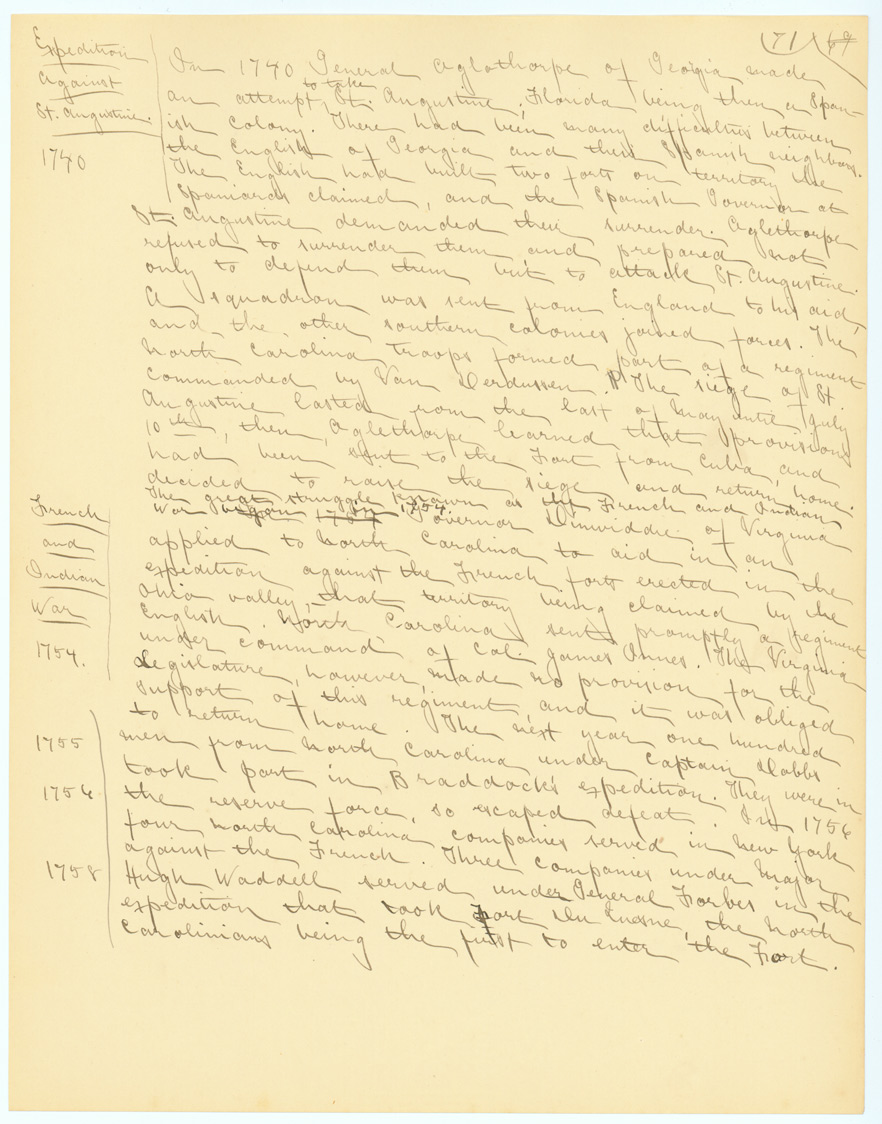 71 69
Expedition
Against
St. Augustine.
1740
In 1740 General Oglethorpe of Georgia made
to take
an attempt St. Augustine, Florida being then a Span-
ish colony. There had been many difficulties between
the English of Georgia and their Spanish neighbors.
The English had built two forts on territory the
Spaniards claimed, and the Spanish Governor at
St. Augustine demanded their surrender. Oglethorpe
refused to surrender them and prepared not
only to defend them but to attack St. Augustine.
A squadron was sent from England to his aid,
and the other southern colonies joined forces. The
North Carolina troops formed part of a regiment
commanded by Van Derdussen. The siege of St.
Augustine lasted from the last of May until July
10th, then, Oglethorpe learned that provisions
had been sent to the Fort from Cuba, and
decided to raise the siege and return home.
French
and
Indian
War
1754.
The great struggle known as the French and Indian
War began in 1754. Governor Dinwiddie of Virginia
applied to North Carolina to aid in an
expedition against the French forts erected in the
Ohio valley, that territory being claimed by the
English. North Carolina sent promptly a regiment
under command of Col. James Innes. The Virginia
Legislature, however, made no provision for the
support of this regiment, and it was obliged
to return home. The next year one hundred
1755
men from North Carolina under Captain Dobbs
took part in Braddock's expedition. They were in
1756
the reserve force, so escaped defeat. In 1756
four North Carolina companies served in New York
against the French. Three companies under Major
1758
Hugh Waddell served under General Forbes in the
expedition that took Fort Du Quesne, the North
Carolinians being the first to enter the Fort.